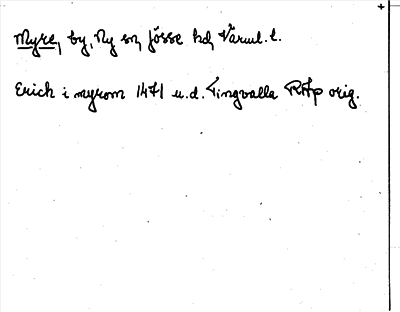 Myre, by, Ny sn, Jösse hd, Värml. l.
Erich i myrom 1471 u.d. Tingvalla RAp orig.